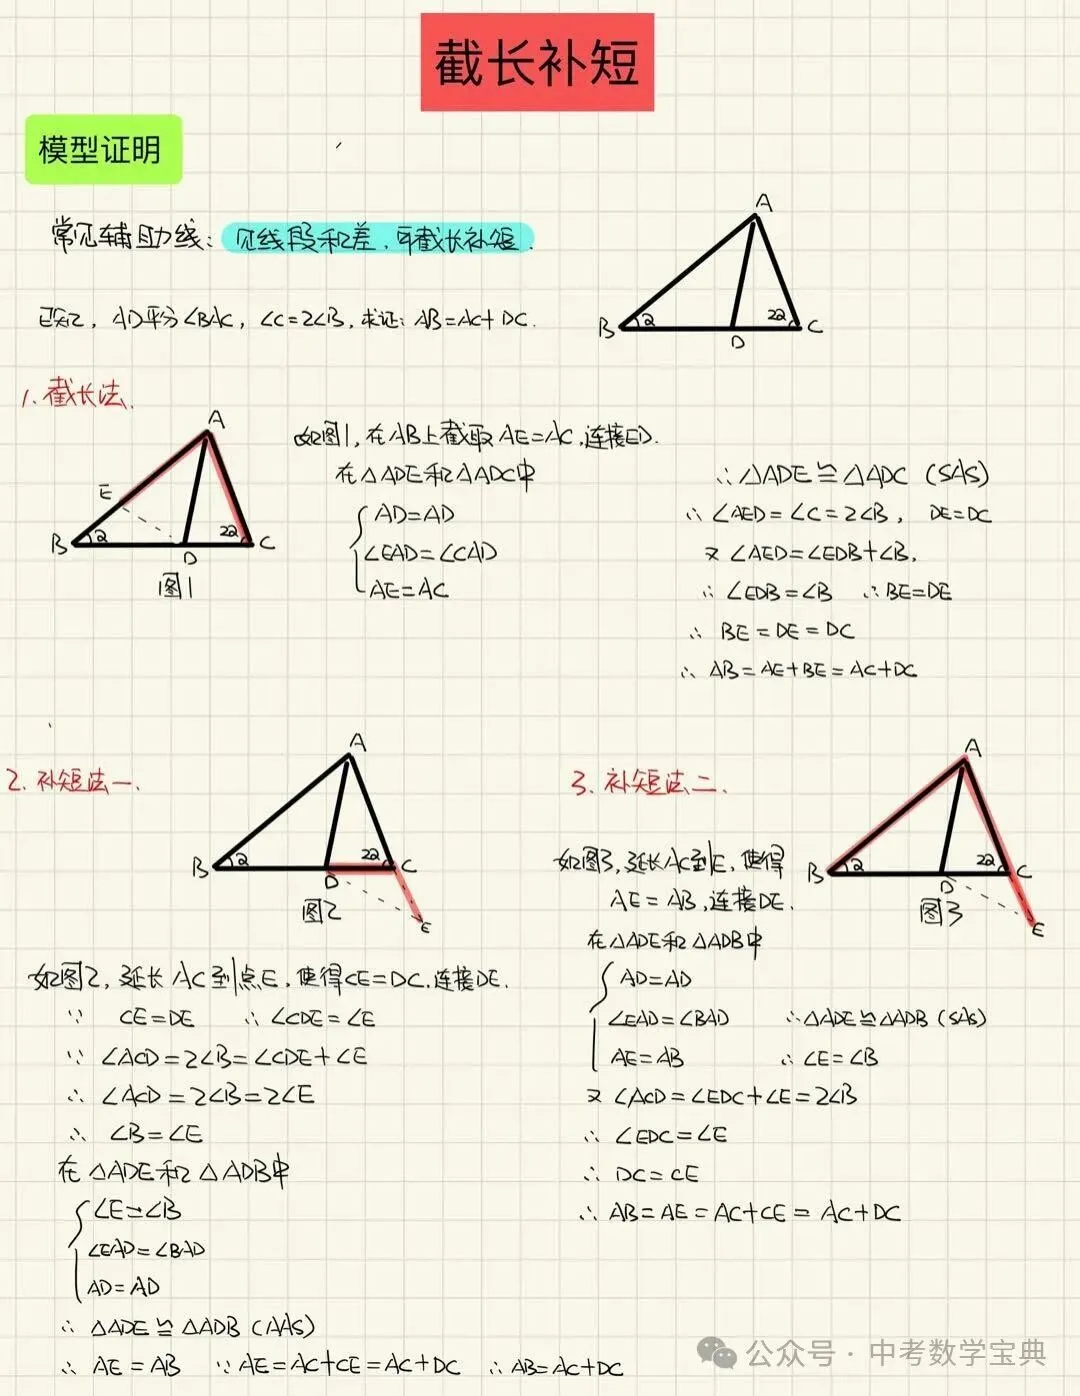 截长补短
模型证明
常见辅助线：见线段和差，可截长补短.
A
B 2 22 C
D
已知2, AD平分∠BAC, ∠C=2∠B, 求证: AB=AC+DC.
1. 截长法.
A
E
B 2 22 C
D
图1
如图1, 在AB上截取AE=AC, 连接ED.
在△ADE和△ADC中
AD=AD
∠EAD=∠CAD
AE=AC
∴ △ADE≌△ADC (SAS)
∴ ∠AED=∠C=2∠B, DE=DC
又 ∠AED=∠EDB+∠B,
∴ ∠EDB=∠B ∴BE=DE
∴ BE=DE=DC
∴ AB=AE+BE=AC+DC
2. 补短法一.
A
B 2 22 C
D
E
图2
如图2, 延长AC到点E, 使得CE=DC, 连接DE.
∵ CE=DE ∴ ∠CDE=∠E
∵ ∠ACD=2∠B=∠CDE+∠E
∴ ∠ACD=2∠B=2∠E
∴ ∠B=∠E
在△ADE和△ADB中
∠E=∠B
∠EAD=∠BAD
AD=AD
∴ △ADE≌△ADB (AAS)
∴ AE=AB ∵AE=AC+CE=AC+DC ∴AB=AC+DC
3. 补短法二.
A
B 2 22 C
D
E
图3
如图3, 延长AC到E, 使得
AE=AB, 连接DE.
在△ADE和△ADB中
AD=AD
∠EAD=∠BAD ∴△ADE≌△ADB (SAS)
AE=AB ∴ ∠E=∠B
又 ∠ACD=∠EDC+∠E=2∠B
∴ ∠EDC=∠E
∴ DC=CE
∴ AB=AE=AC+CE=AC+DC
公众号 · 中考数学宝典